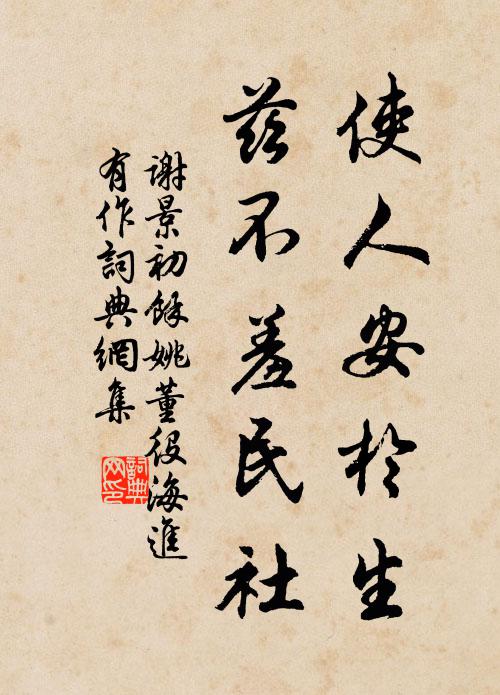 使人安於生
茲不羞民社
謝景初餘姚董役海進
有作詞典網集
詞典
网印